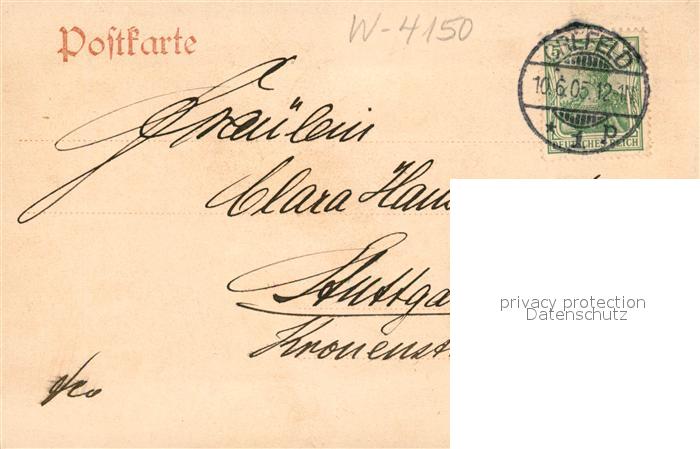 W-4150
Postkarte
CREFELD
10.6.05.12-1
* 1 p
DEUTSCHES REICH
Fräulein
Clara Hau
Stuttga
Kronenst
privacy protection
Datenschutz